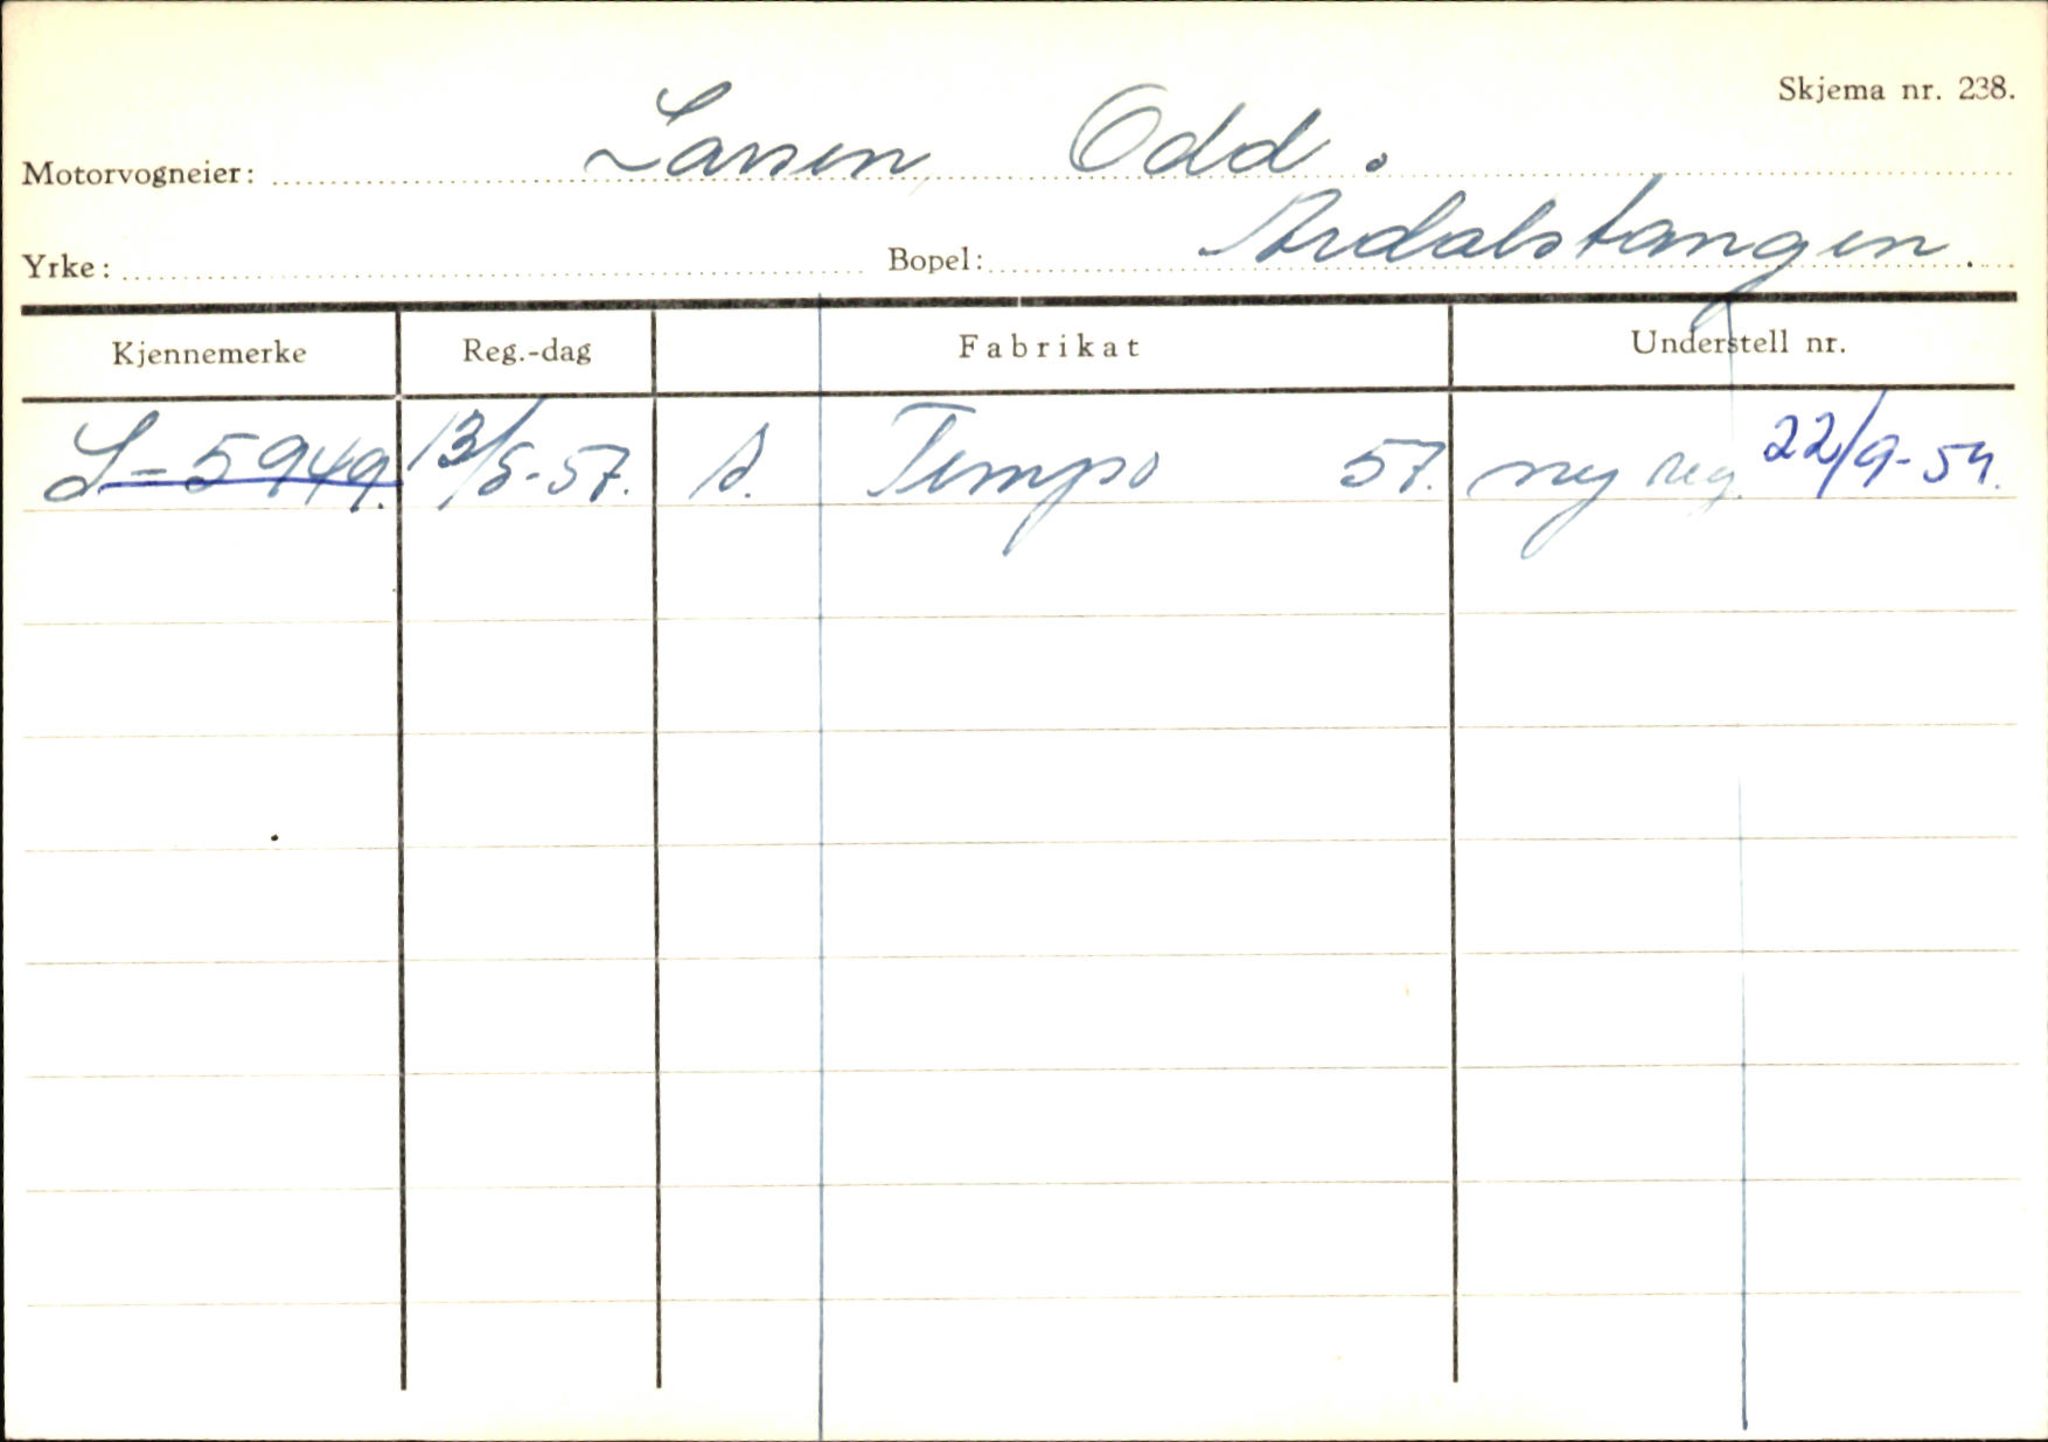 Skjema nr. 238.
Motorvogneier: Larsen, Odd.
Yrke: Bopel: Årdalstangen.
Kjennemerke Reg.-dag Fabrikat Understell nr.
S-5949. 13/5-57. S. Tempo 57. ny reg. 22/9-59.